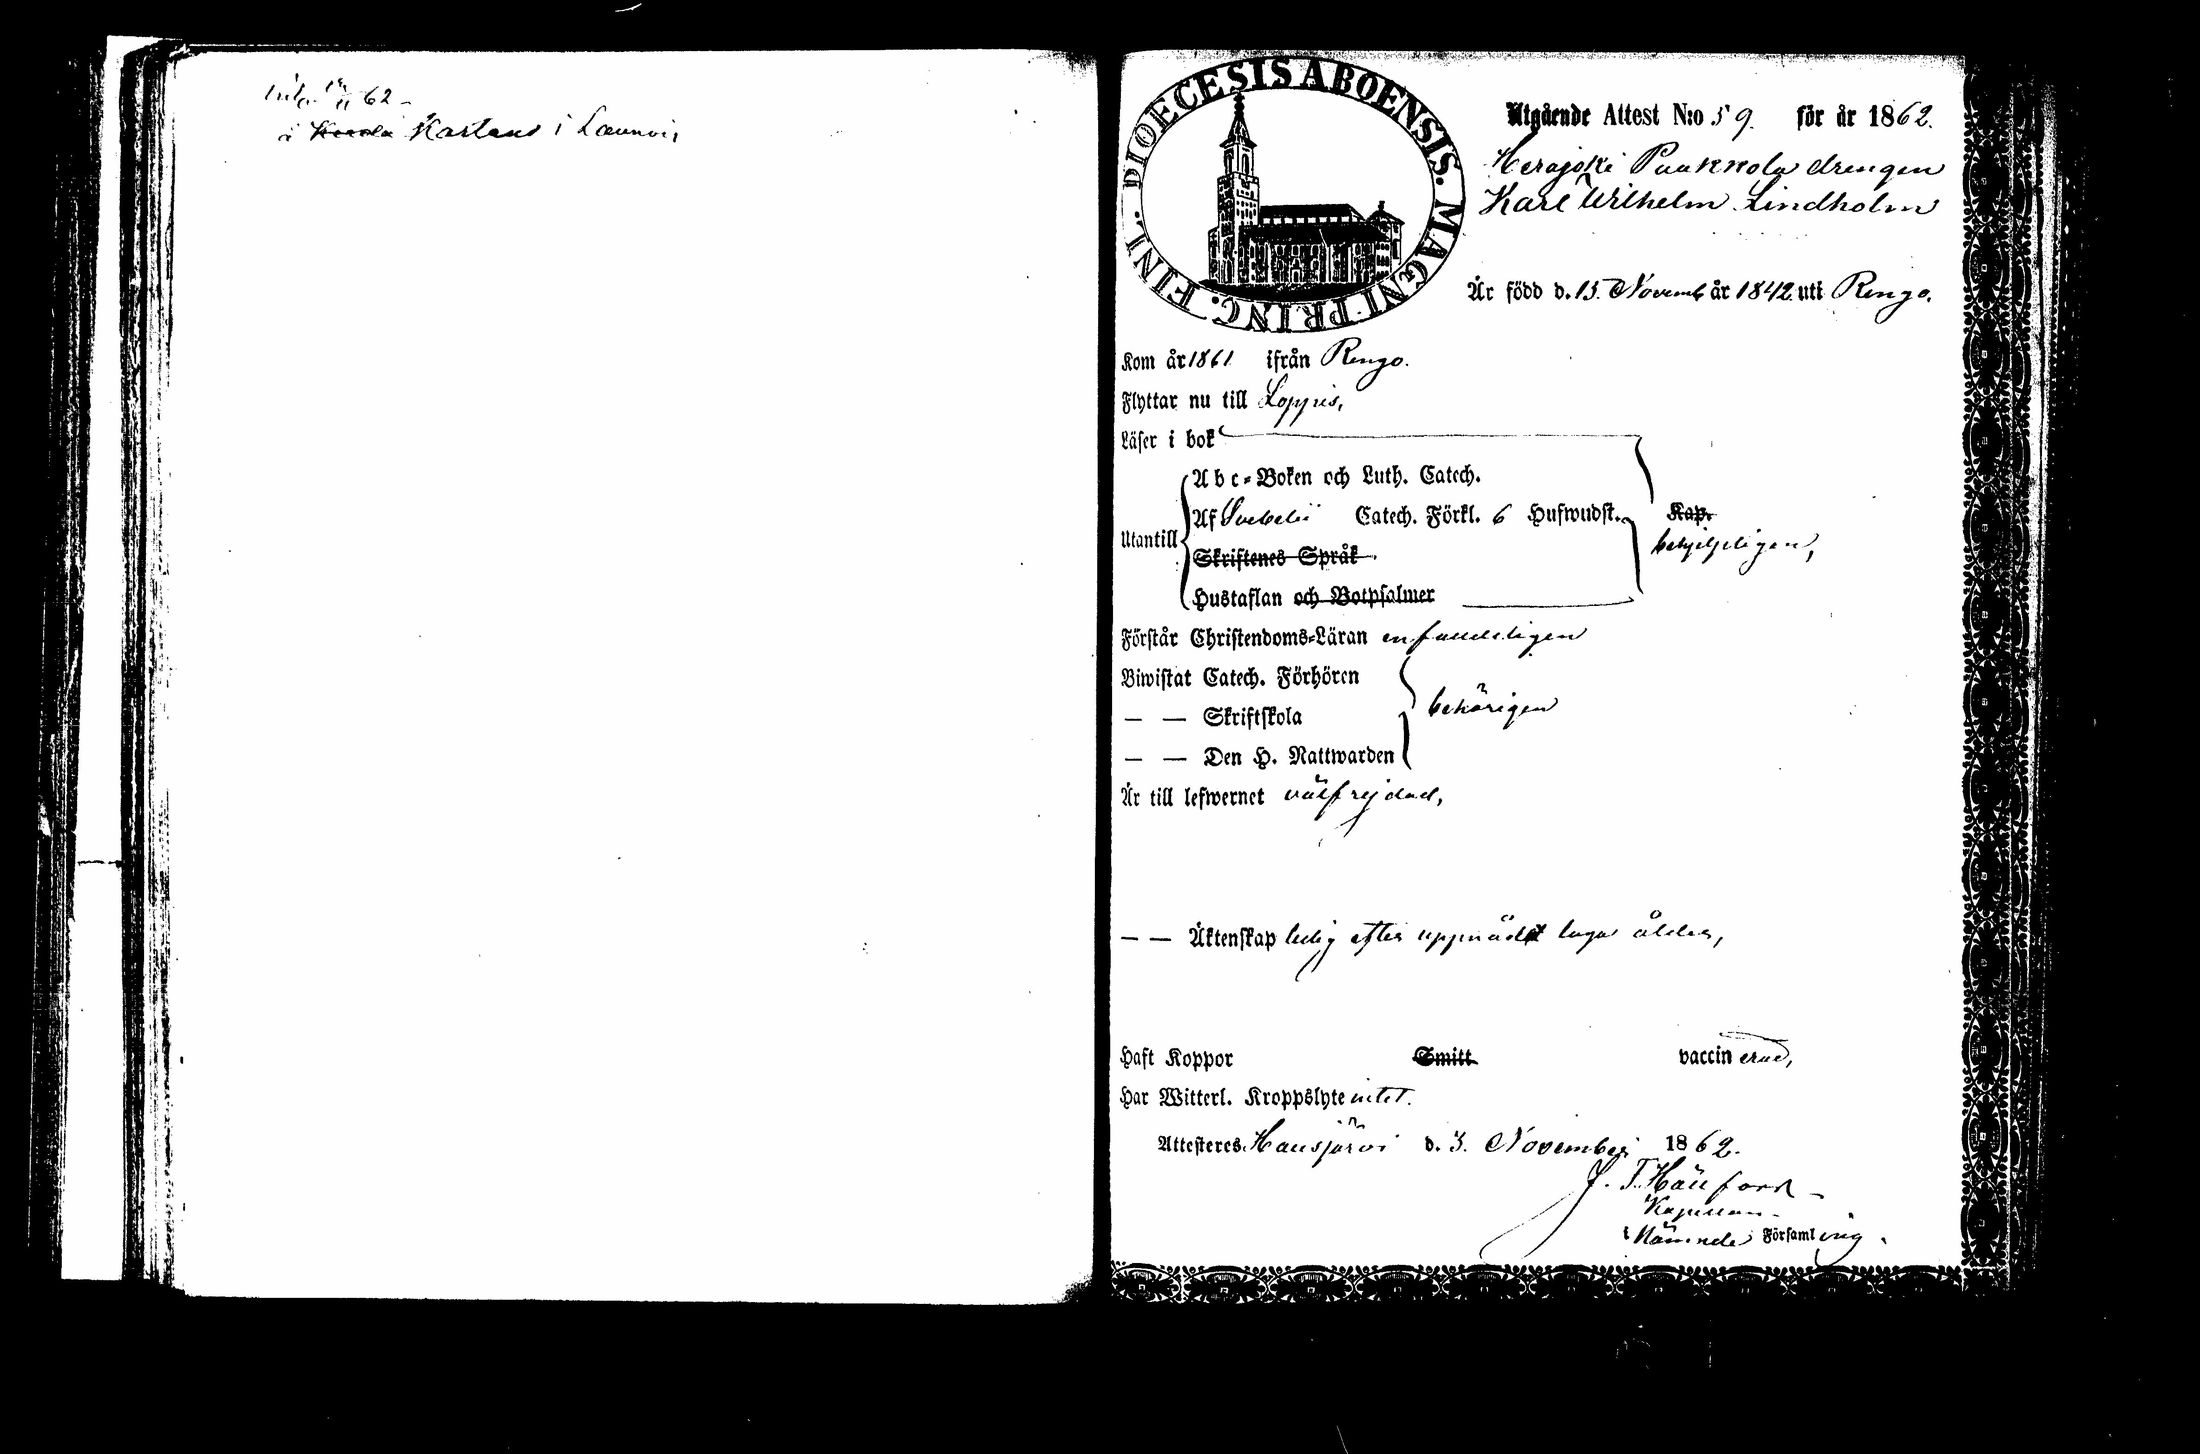 62
å Karlans i Launois
DIOECESIS ABOENSIS. MAGNI PRINC. FINL.
Utgående Attest N:o 59. för år 1862.
Herajoki Paakkola drengen
Karl Wilhelm Lindholm
Är född d. 15. Novemb år 1842 uti Rengo.
Kom år 1861 ifrån Rengo.
Flyttar nu till Loppis,
Läser i bok
Abc-Boken och Luth. Catech.
Utantill
Af Svebelii Catech. Förkl. 6 Hufwudst. Kap.
behjelpligen,
Skriftenes Språk
Hustaflan och Botpsalmer
Förstår Christendoms-Läran enfaldeligen
Biwistat Catech. Förhören
— — Skriftskola behörigen
— — Den H. Nattwarden
Är till lefwernet välfrejdad,
— — Äktenskap ledig efter uppnådt laga ålder,
Haft Koppor Smitt vaccinerad,
Har Witterl. Kroppslyte intet.
Attesteres Hausjärvi d. 3. November 1862.
J. T. Hällfors
Kapellan
i Nämnde Församling.